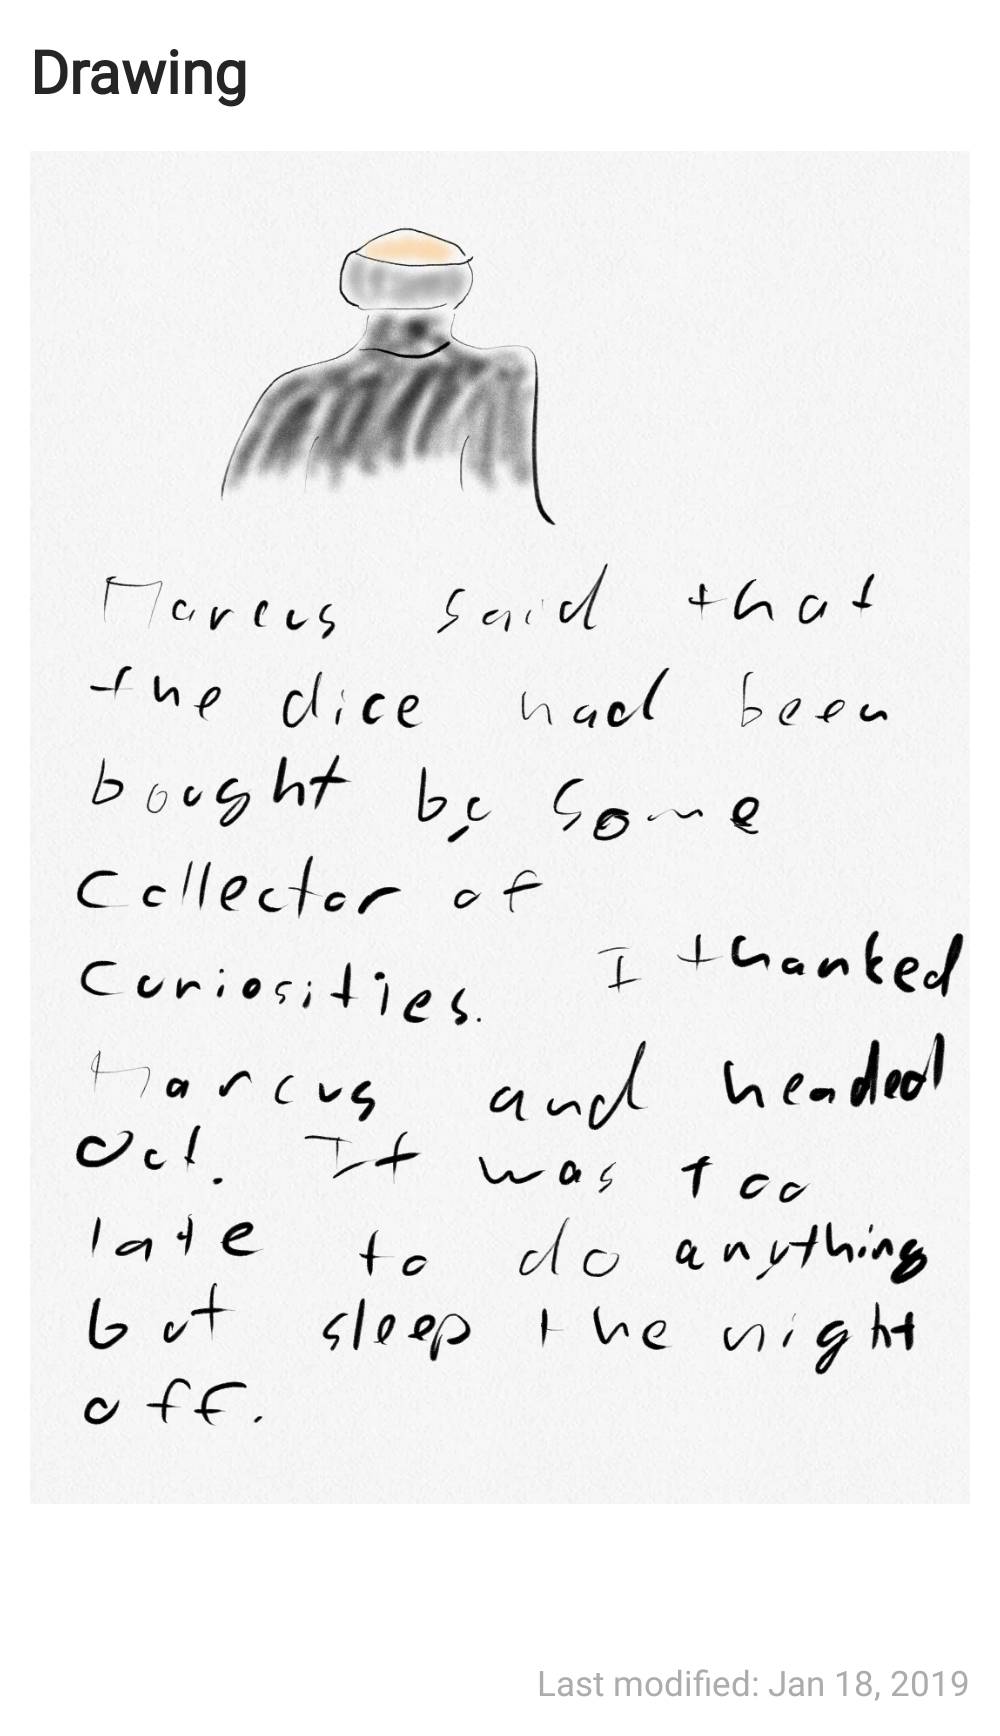 Drawing
Marcus said that
the dice had been
bought by some
collector of
curiosities. I thanked
Marcus and headed
out. It was too
late to do anything
but sleep the night
off.
Last modified: Jan 18, 2019